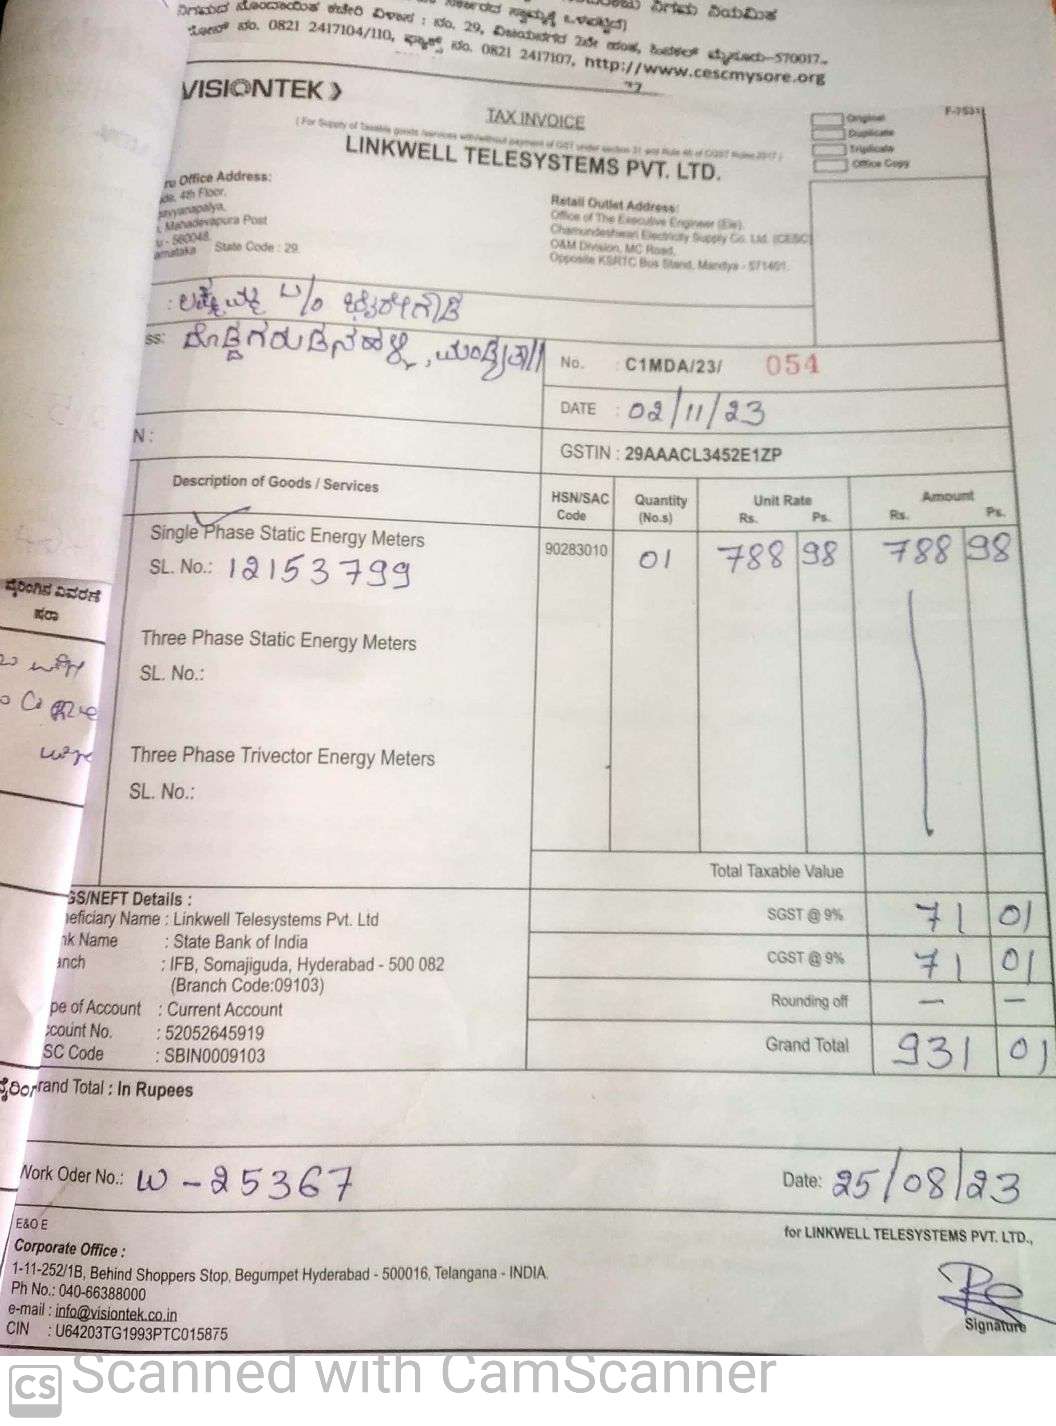 ಫೋನ್ ನಂ. 0821 2417104/110, ಫ್ಯಾಕ್ಸ್ ನಂ. 0821 2417107, http://www.cescmysore.org
VISIONTEK
F-7531
TAX INVOICE
Original
Duplicate
Triplicate
Office Copy
( For Supply of Taxable goods /services with/without payment of GST under section 31 and Rule 46 of CGST Rules 2017 )
LINKWELL TELESYSTEMS PVT. LTD.
Office Address:
4th Floor,
Mahadevapura Post
- 560048,
State Code : 29
Retail Outlet Address:
Office of The Executive Engineer (Ele),
Chamundeshwari Electricity Supply Co. Ltd. (CESC)
O&M Division, MC Road,
Opposite KSRTC Bus Stand, Mandya - 571401.
No. : C1MDA/23/ 054
DATE : 02/11/23
N :
GSTIN : 29AAACL3452E1ZP
Description of Goods / Services
HSN/SAC Code
Quantity (No.s)
Unit Rate Rs. Ps.
Amount Rs. Ps.
Single Phase Static Energy Meters
90283010 01 788 98 788 98
SL. No.: 12153799
Three Phase Static Energy Meters
SL. No.:
Three Phase Trivector Energy Meters
SL. No.:
Total Taxable Value
GS/NEFT Details :
eficiary Name : Linkwell Telesystems Pvt. Ltd
SGST @ 9% 71 01
nk Name : State Bank of India
anch : IFB, Somajiguda, Hyderabad - 500 082
(Branch Code:09103)
CGST @ 9% 71 01
pe of Account : Current Account
Rounding off — —
count No. : 52052645919
SC Code : SBIN0009103
Grand Total 931 01
rand Total : In Rupees
Work Oder No.: W-25367
Date: 25/08/23
E&O E
for LINKWELL TELESYSTEMS PVT. LTD.,
Corporate Office :
1-11-252/1B, Behind Shoppers Stop, Begumpet Hyderabad - 500016, Telangana - INDIA.
Ph No.: 040-66388000
e-mail : info@visiontek.co.in
CIN : U64203TG1993PTC015875
Signature
CS Scanned with CamScanner